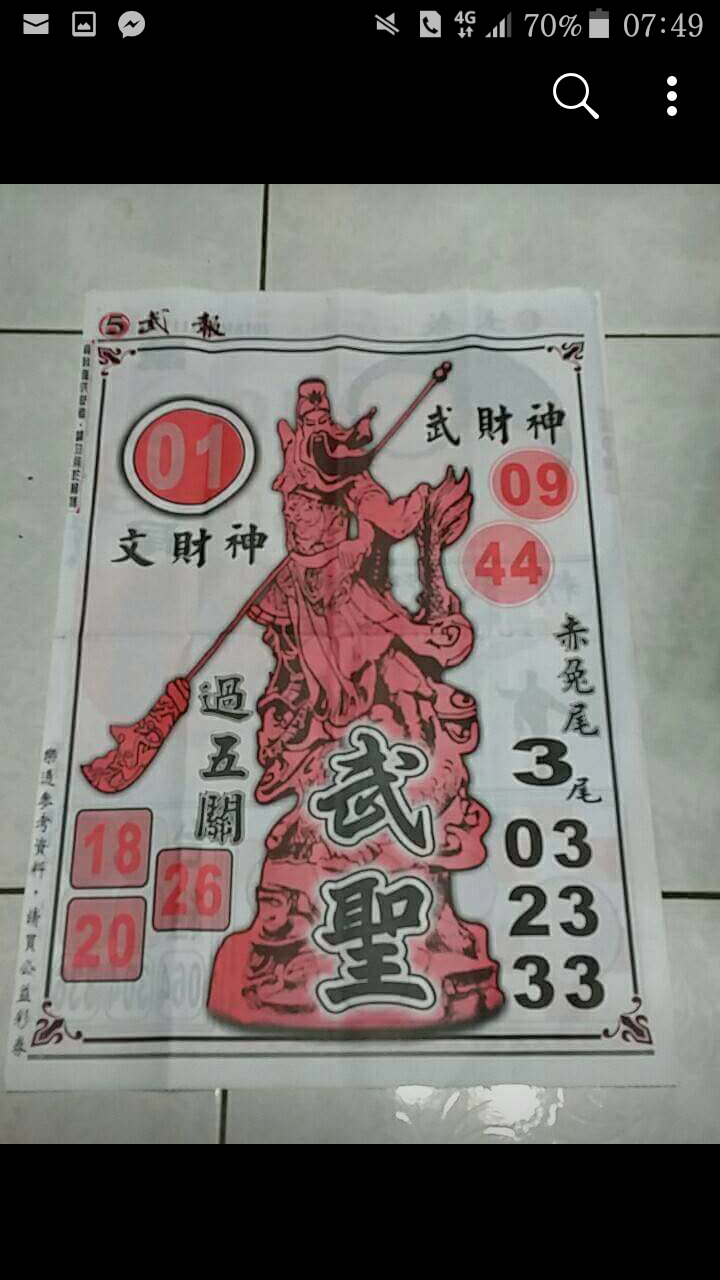 4G 70% 07:49
5 武報
01
文財神
武財神
09
44
赤兔尾
3尾
03
23
33
過五關
18
26
20
武聖
樂透參考資料，請買公益彩券